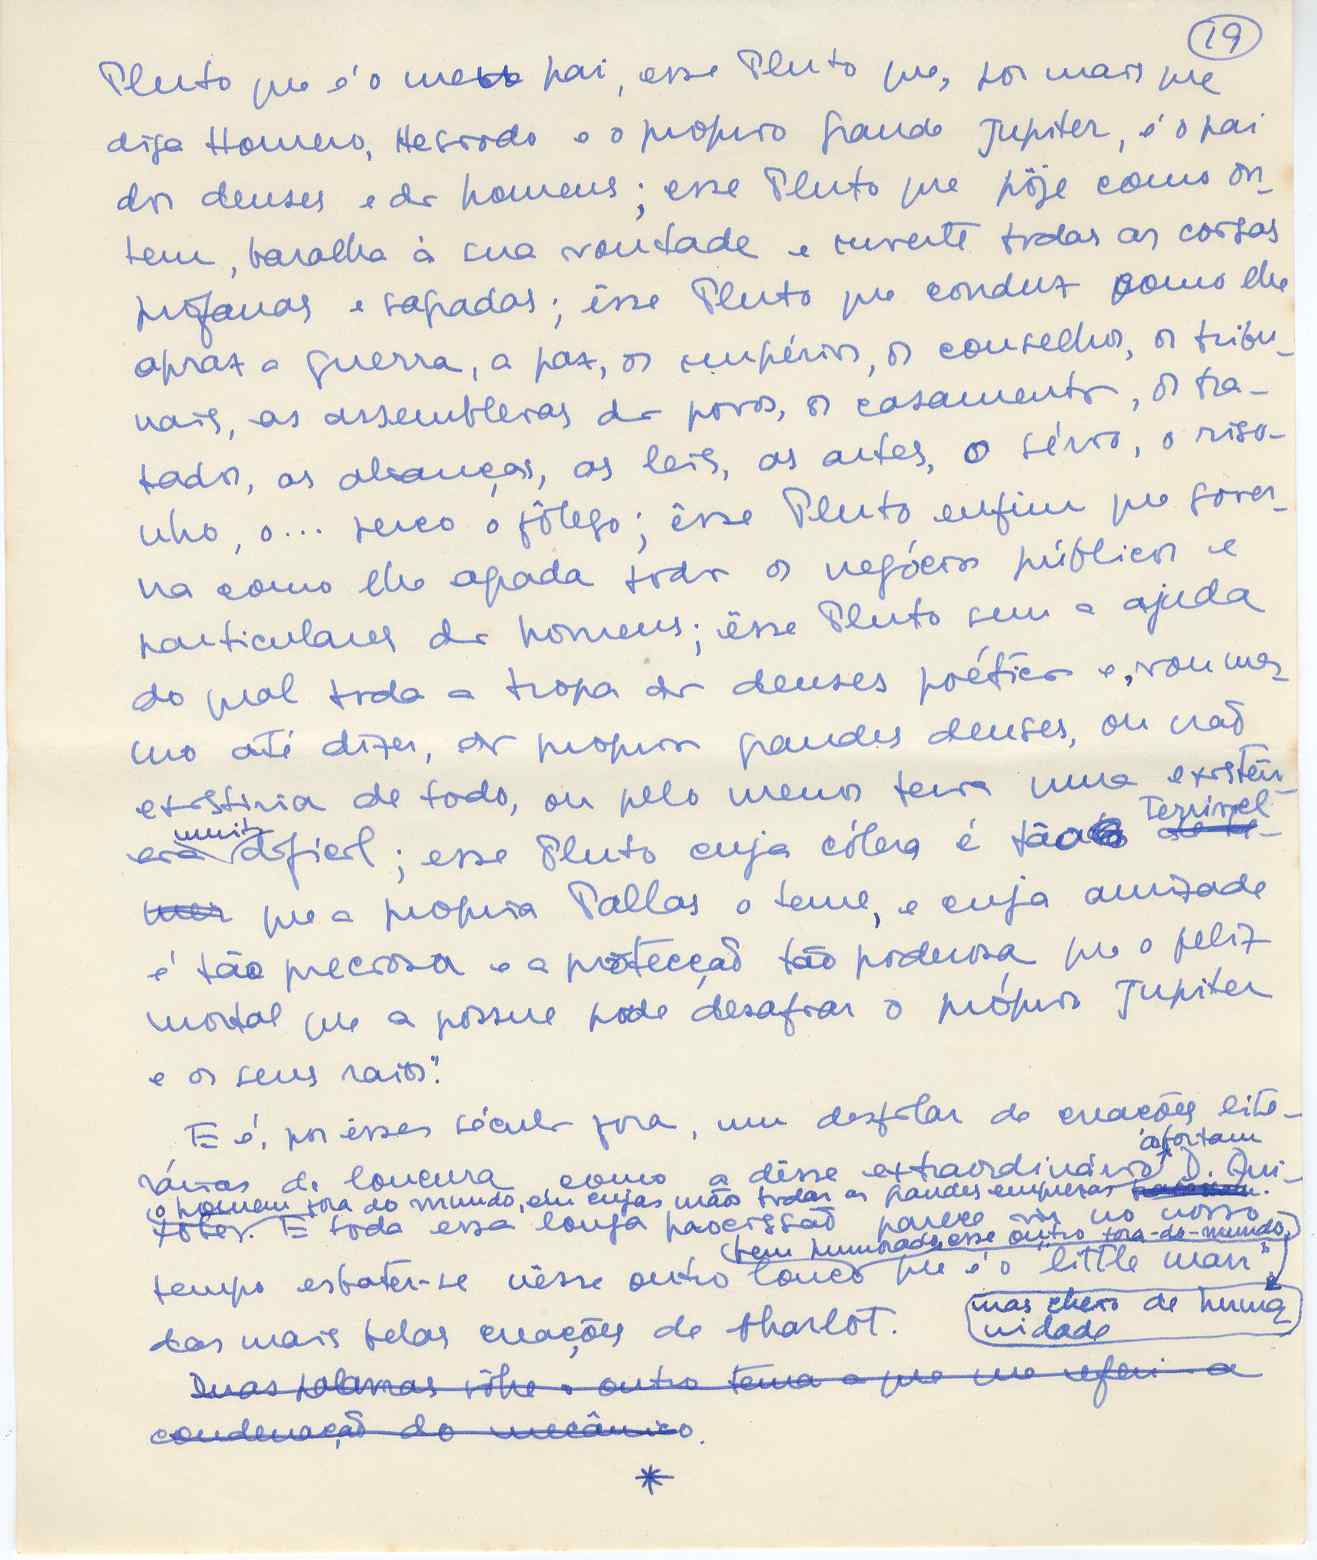 19
Pluto que é o meu pai, esse Pluto que, por mais que
diga Homero, Hesiodo e o proprio grande Jupiter, é o pai
dos deuses e dos homens; esse Pluto que hôje como ôn-
tem, baralha à sua vontade e inverte todas as coisas
profanas e sagradas; êsse Pluto que conduz como lhe
apraz a guerra, a paz, os impérios, os conselhos, os tribu-
nais, as assembleias dos povos, os casamentos, os tra-
tados, as alianças, as leis, as artes, o sério, o riso-
nho, o... perco o fôlego; êsse Pluto enfim que gover-
na como lhe agrada todos os negócios públicos e
particulares dos homens; êsse Pluto sem a ajuda
do qual toda a tropa dos deuses poéticos e, vou mes-
mo até dizer, os proprios grandes deuses, ou não
existiria de todo, ou pelo menos teria uma existên-
cia muito dificil; esse Pluto cuja cólera é tão terrivel de te-
mer que a propria Pallas o teme, e cuja amizade
é tão preciosa e a protecção tão poderosa que o feliz
mortal que a possue pode desafiar o próprio Jupiter
e os seus raios".
E é, por êsses séculos fora, um desfilar de creações lite-
rárias de loucura como a dêsse extraordinário D. Qui-
xote, o homem fora do mundo, em cujas mãos todas as grandes empresas abortam.
E toda essa longa procissão parece vir no nosso
tempo esbater-se nêsse outro louco bem humorado, esse outro fora-do-mundo, mas cheio de huma-
nidade que é o "little man"
das mais belas creações de Charlot.
Duas palavras sôbre o outro tema a que me referi - a
condenação do mecânico.
*